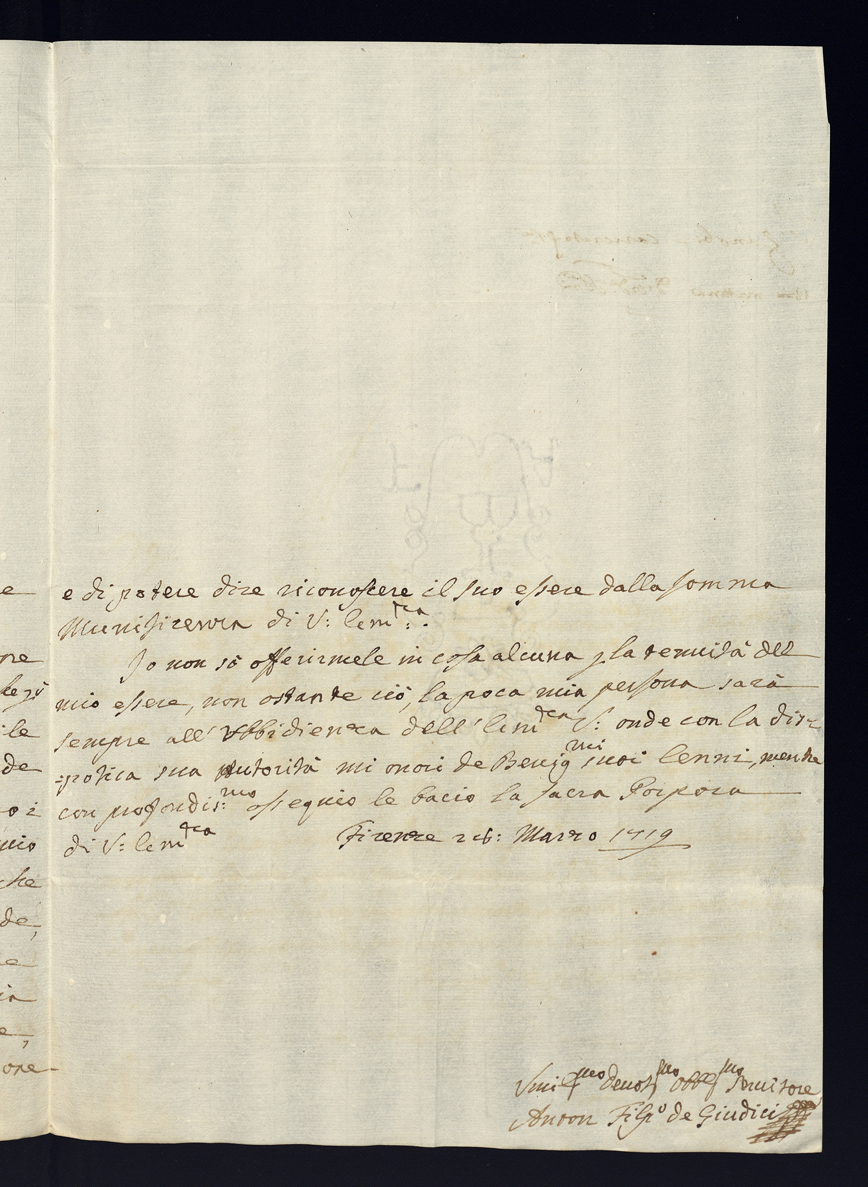 e di potere dire riconoscere il suo essere dalla somma
Munificenza di V: Em:rza:
Io non sò offerirmele in cosa alcuna p la tenuità del
mio essere, non ostante ciò, la poca mia persona sarà
sempre all' Vbbidienza dell' Emrza V: onde con la dis=
=potica sua Autorità mi onori de Benigmi suoi Cenni, mentre
con profondis:mo ossequio le bacio la sacra Porpora
di V: Emrza Firenze 28: Marzo 1719
Vmilmo devotmo obblmo Servitore
Anton Fil:o de Giudici
e
ne
ile
de
o i
che
de,
e
ia
e,
one